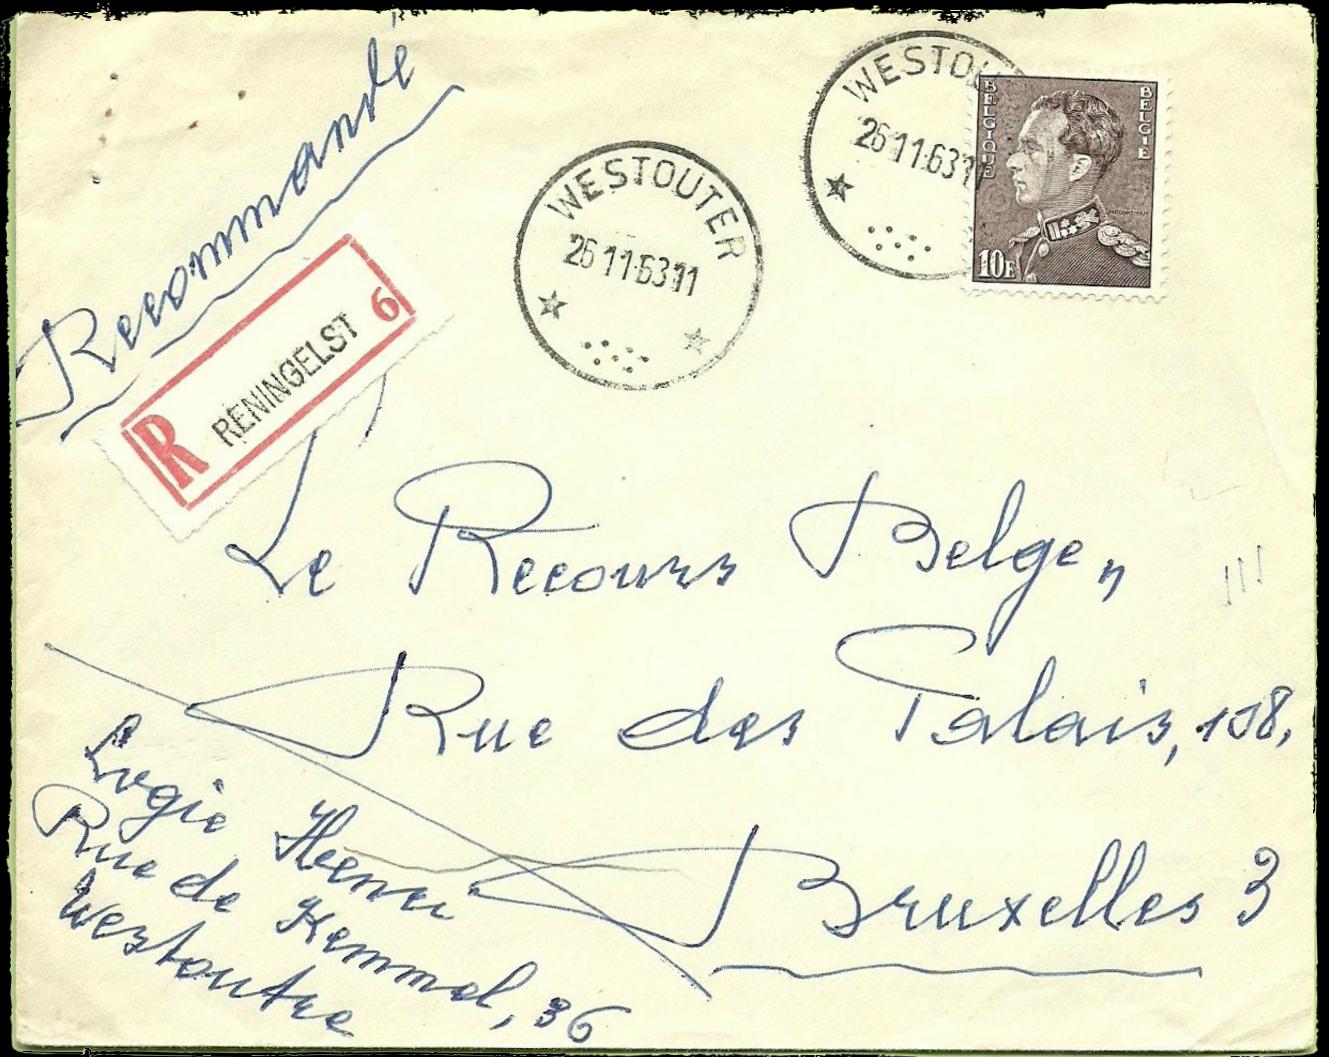 Recommandé
R RENINGELST 6
WESTOUTER
26 11.63 11
WESTOU
26 11.63 1
BELGIQUE
BELGIE
10F
Le Recours Belge,
Rue des Palais, 108,
Bruxelles 3
Logie Henri
Rue de Kemmel, 36
Westoutre